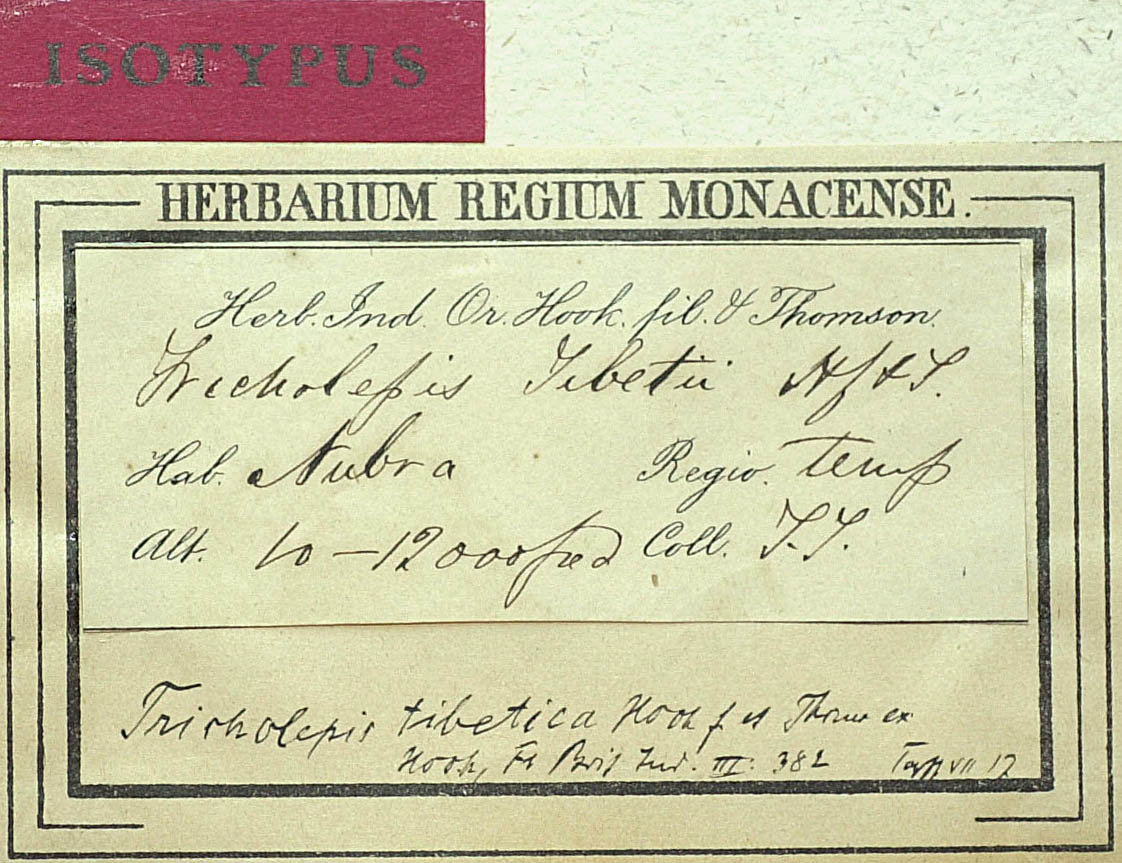 ISOTYPUS
HERBARIUM REGIUM MONACENSE.
Herb. Ind. Or. Hook. fil. & Thomson.
Tricholepis Tibetii Hf & T.
Hab. Nubra Regio. temp
Alt. 10–12000 ped Coll. T.T.
Tricholepis tibetica Hook f et Thoms ex
Hook, Fl Brit Ind. III: 382